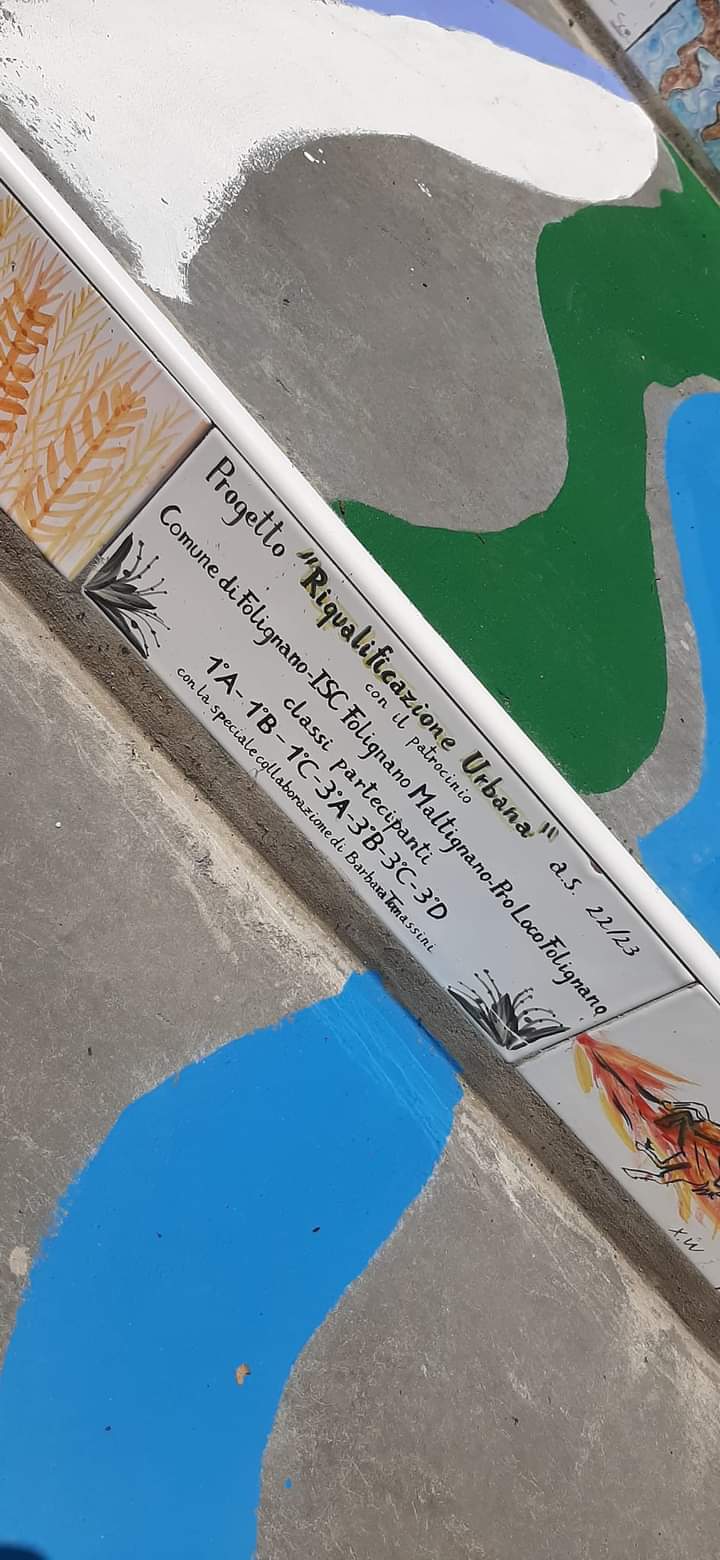 Progetto "Riqualificazione Urbana" a.s. 22/23
con il patrocinio
Comune di Folignano-ISC Folignano Maltignano-Pro Loco Folignano
classi partecipanti
1°A-1°B-1°C-3°A-3°B-3°C-3°D
con la speciale collaborazione di Barbara Tomassini